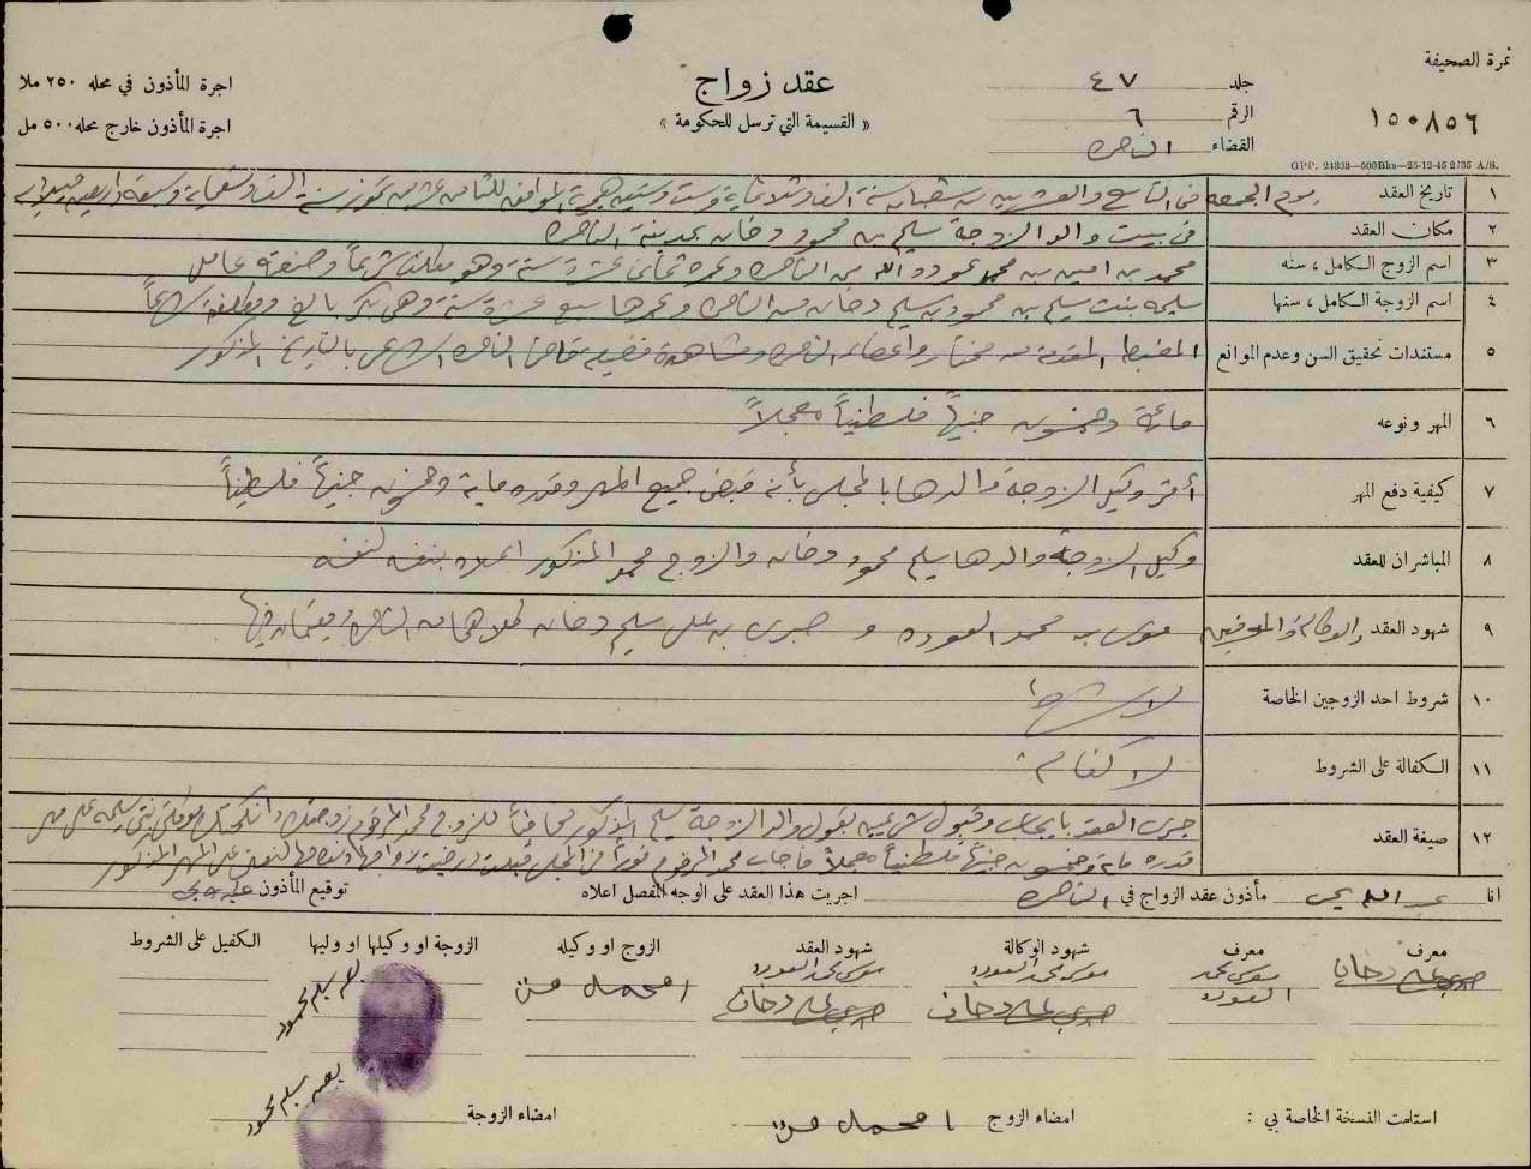 نمرة الصحيفة
١٥٠٨٥٦
جلد ٤٧
الرقم ٦
القضاء الناصره
عقد زواج
« القسيمة التي ترسل للحكومة »
اجرة المأذون في محله ٢٥٠ ملا
اجرة المأذون خارج محله ٥٠٠ مل
GPP. 24333—500Bks—23-12-45 2735 A/S.
١ تاريخ العقد يوم الجمعه في التاسع والعشرين من شعبان سنة الف وثلاثماية وست وستين هجرية الموافق للثامن عشر من تموز سنة الف وتسعماية وسبعة واربعين ميلادية
٢ مكان العقد في بيت والد الزوجة سليم بن محمود دخان بمدينة الناصره
٣ اسم الزوج الكامل ، سنه محمد بن امين بن محمد من الناصره وعمره ثماني عشرة سنة وهو مكلف شرعاً وصنعته عامل
٤ اسم الزوجة الكامل ، سنها سليمه بنت سليم بن محمود بن سليم دخان من الناصره وعمرها سبع عشرة سنة وهي بكر بالغ ومكلفة شرعاً
٥ مستندات تحقيق السن وعدم الموانع المضبطه المقدمة من مختار واعضاء الناصره ومشاهدة فضيلة قاضي الناصره الشرعي بالتاريخ المذكور
٦ المهر ونوعه مائة وخمسون جنيهاً فلسطينياً معجلاً
٧ كيفية دفع المهر أقر وكيل الزوجة والدها بالمجلس بأنه قبض جميع المهر وقدره ماية وخمسون جنيهاً فلسطينياً
٨ المباشران للعقد وكيل الزوجة والدها سليم محمود دخان والزوج محمد المذكور اعلاه بنفسه لنفسه
٩ شهود العقد والوكالة والمعرفين موسى بن محمد العوده و صبري بن علي سليم دخان كلاهما من الناصره ومقيمان فيها
١٠ شروط احد الزوجين الخاصة لا شروط
١١ الكفالة على الشروط لا كفالة
١٢ صيغة العقد جرى العقد بايجاب وقبول شرعيين بقول والد الزوجة سليم المذكور مخاطباً للزوج محمد المرقوم زوجتك وانكحتك موكلتي بنتي سليمه على مهر
قدره ماية وخمسون جنيهاً فلسطينياً معجلاً فاجاب محمد المرقوم فوراً في المجلس قبلت ورضيت زواجها ونكاحها لنفسي على المهر المذكور
انا مأذون عقد الزواج في الناصره اجريت هذا العقد على الوجه المفصل اعلاه توقيع المأذون
معرف معرف شهود الوكالة شهود العقد الزوج او وكيله الزوجة او وكيلها او وليها الكفيل على الشروط
صبري علي دخان موسى محمد العوده موسى محمد العوده موسى محمد العوده محمد امين بصم سليم محمود
صبري علي دخان صبري علي دخان
استلمت النسخة الخاصة بي : امضاء الزوج محمد امين امضاء الزوجة بصم سليم محمود